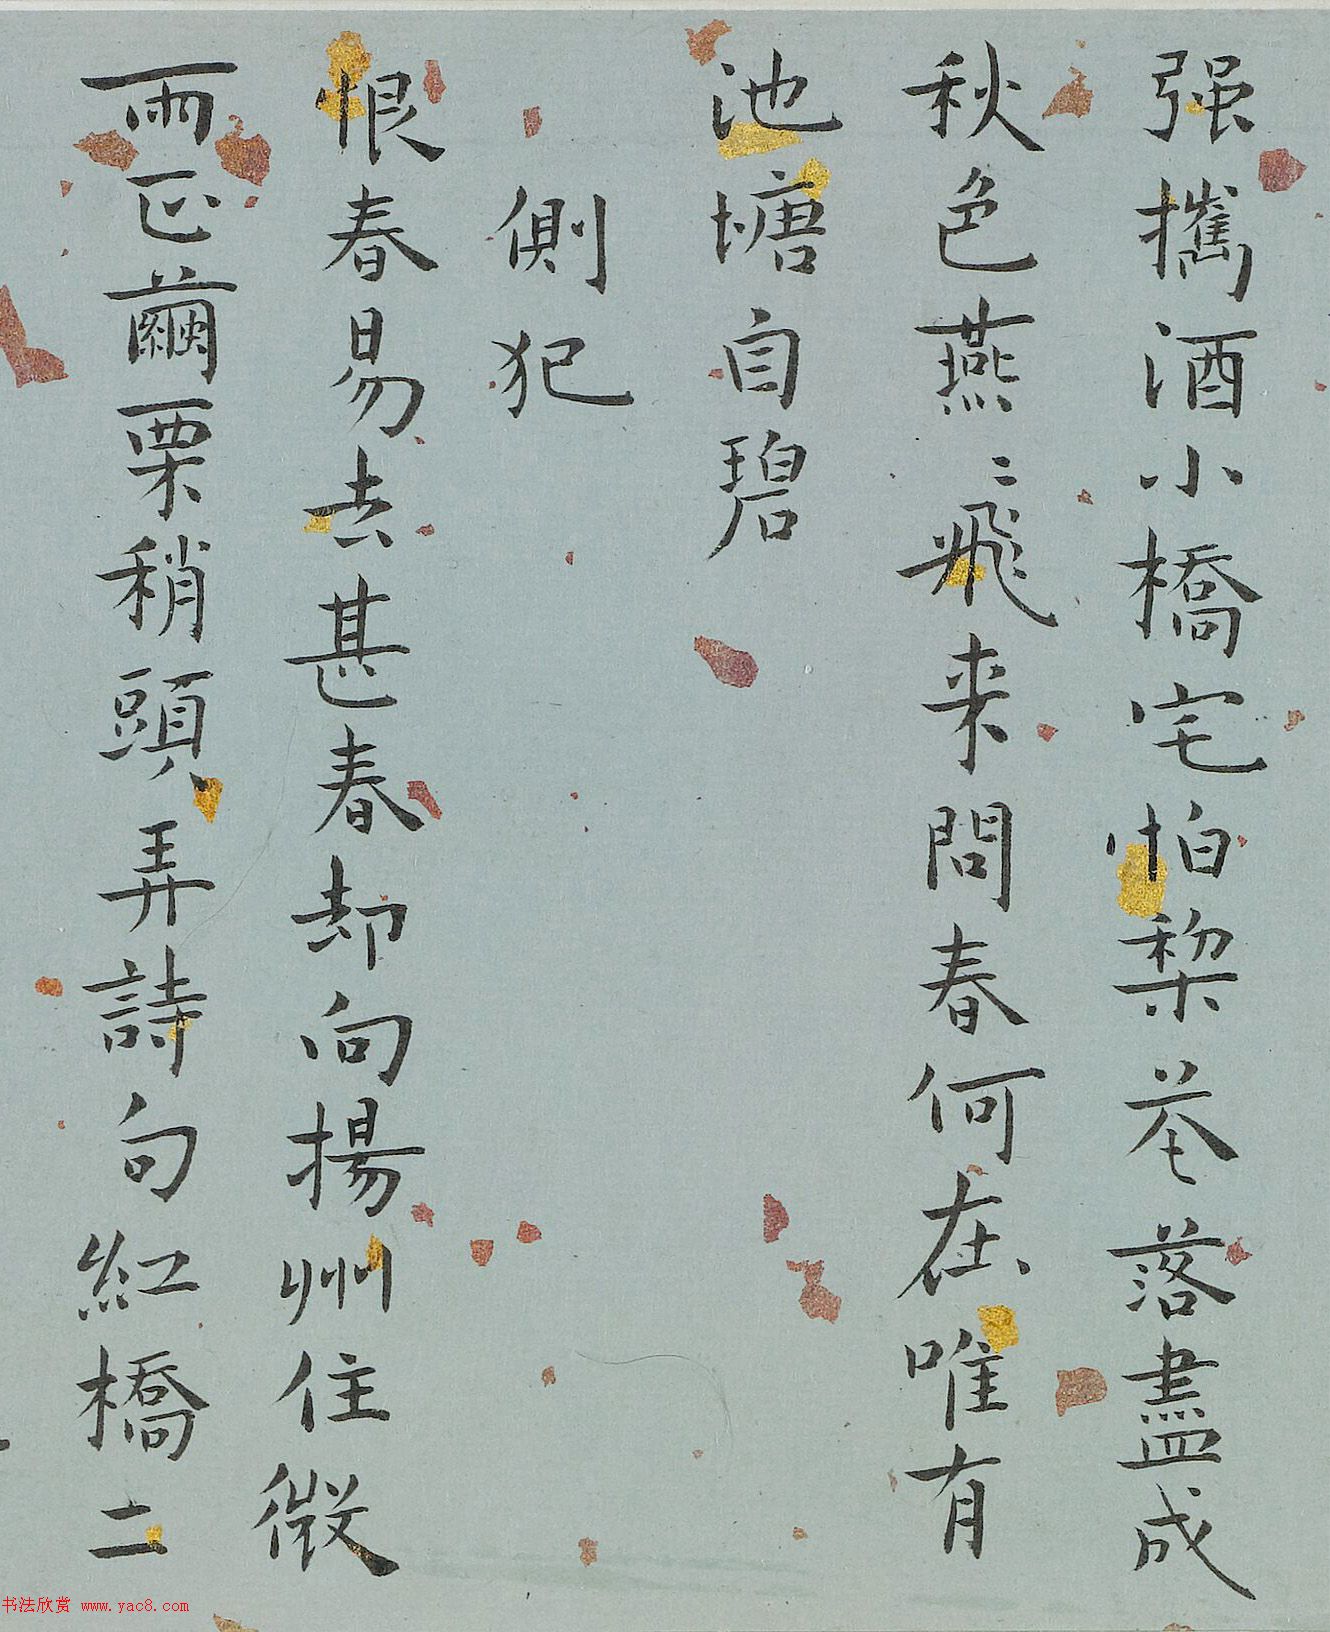 强攜酒小橋宅怕棃花落盡成
秋色燕〻飛来問春何在唯有
池塘自碧
側犯
恨春易去甚春却向揚州住微
雨正繭栗梢頭弄詩句紅橋二
书法欣赏 www.yac8.com